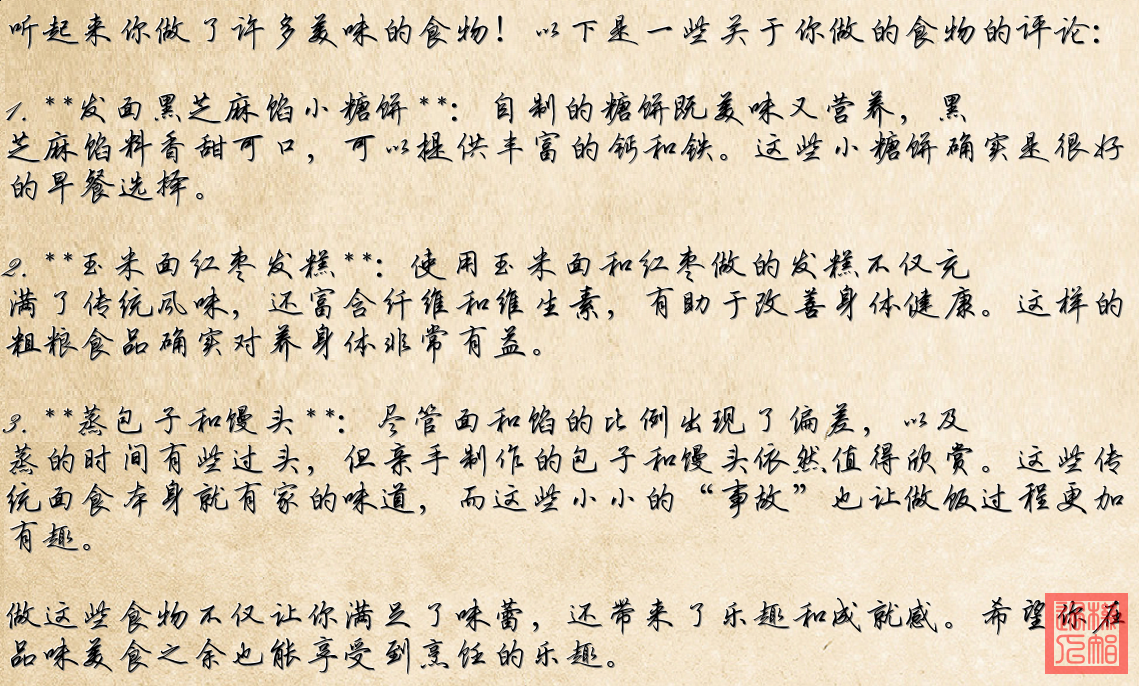 听起来你做了许多美味的食物！以下是一些关于你做的食物的评论：
1. **发面黑芝麻馅小糖饼**：自制的糖饼既美味又营养，黑
芝麻馅料香甜可口，可以提供丰富的钙和铁。这些小糖饼确实是很好
的早餐选择。
2. **玉米面红枣发糕**：使用玉米面和红枣做的发糕不仅充
满了传统风味，还富含纤维和维生素，有助于改善身体健康。这样的
粗粮食品确实对养身体非常有益。
3. **蒸包子和馒头**：尽管面和馅的比例出现了偏差，以及
蒸的时间有些过头，但亲手制作的包子和馒头依然值得欣赏。这些传
统面食本身就有家的味道，而这些小小的“事故”也让做饭过程更加
有趣。
做这些食物不仅让你满足了味蕾，还带来了乐趣和成就感。希望你在
品味美食之余也能享受到烹饪的乐趣。